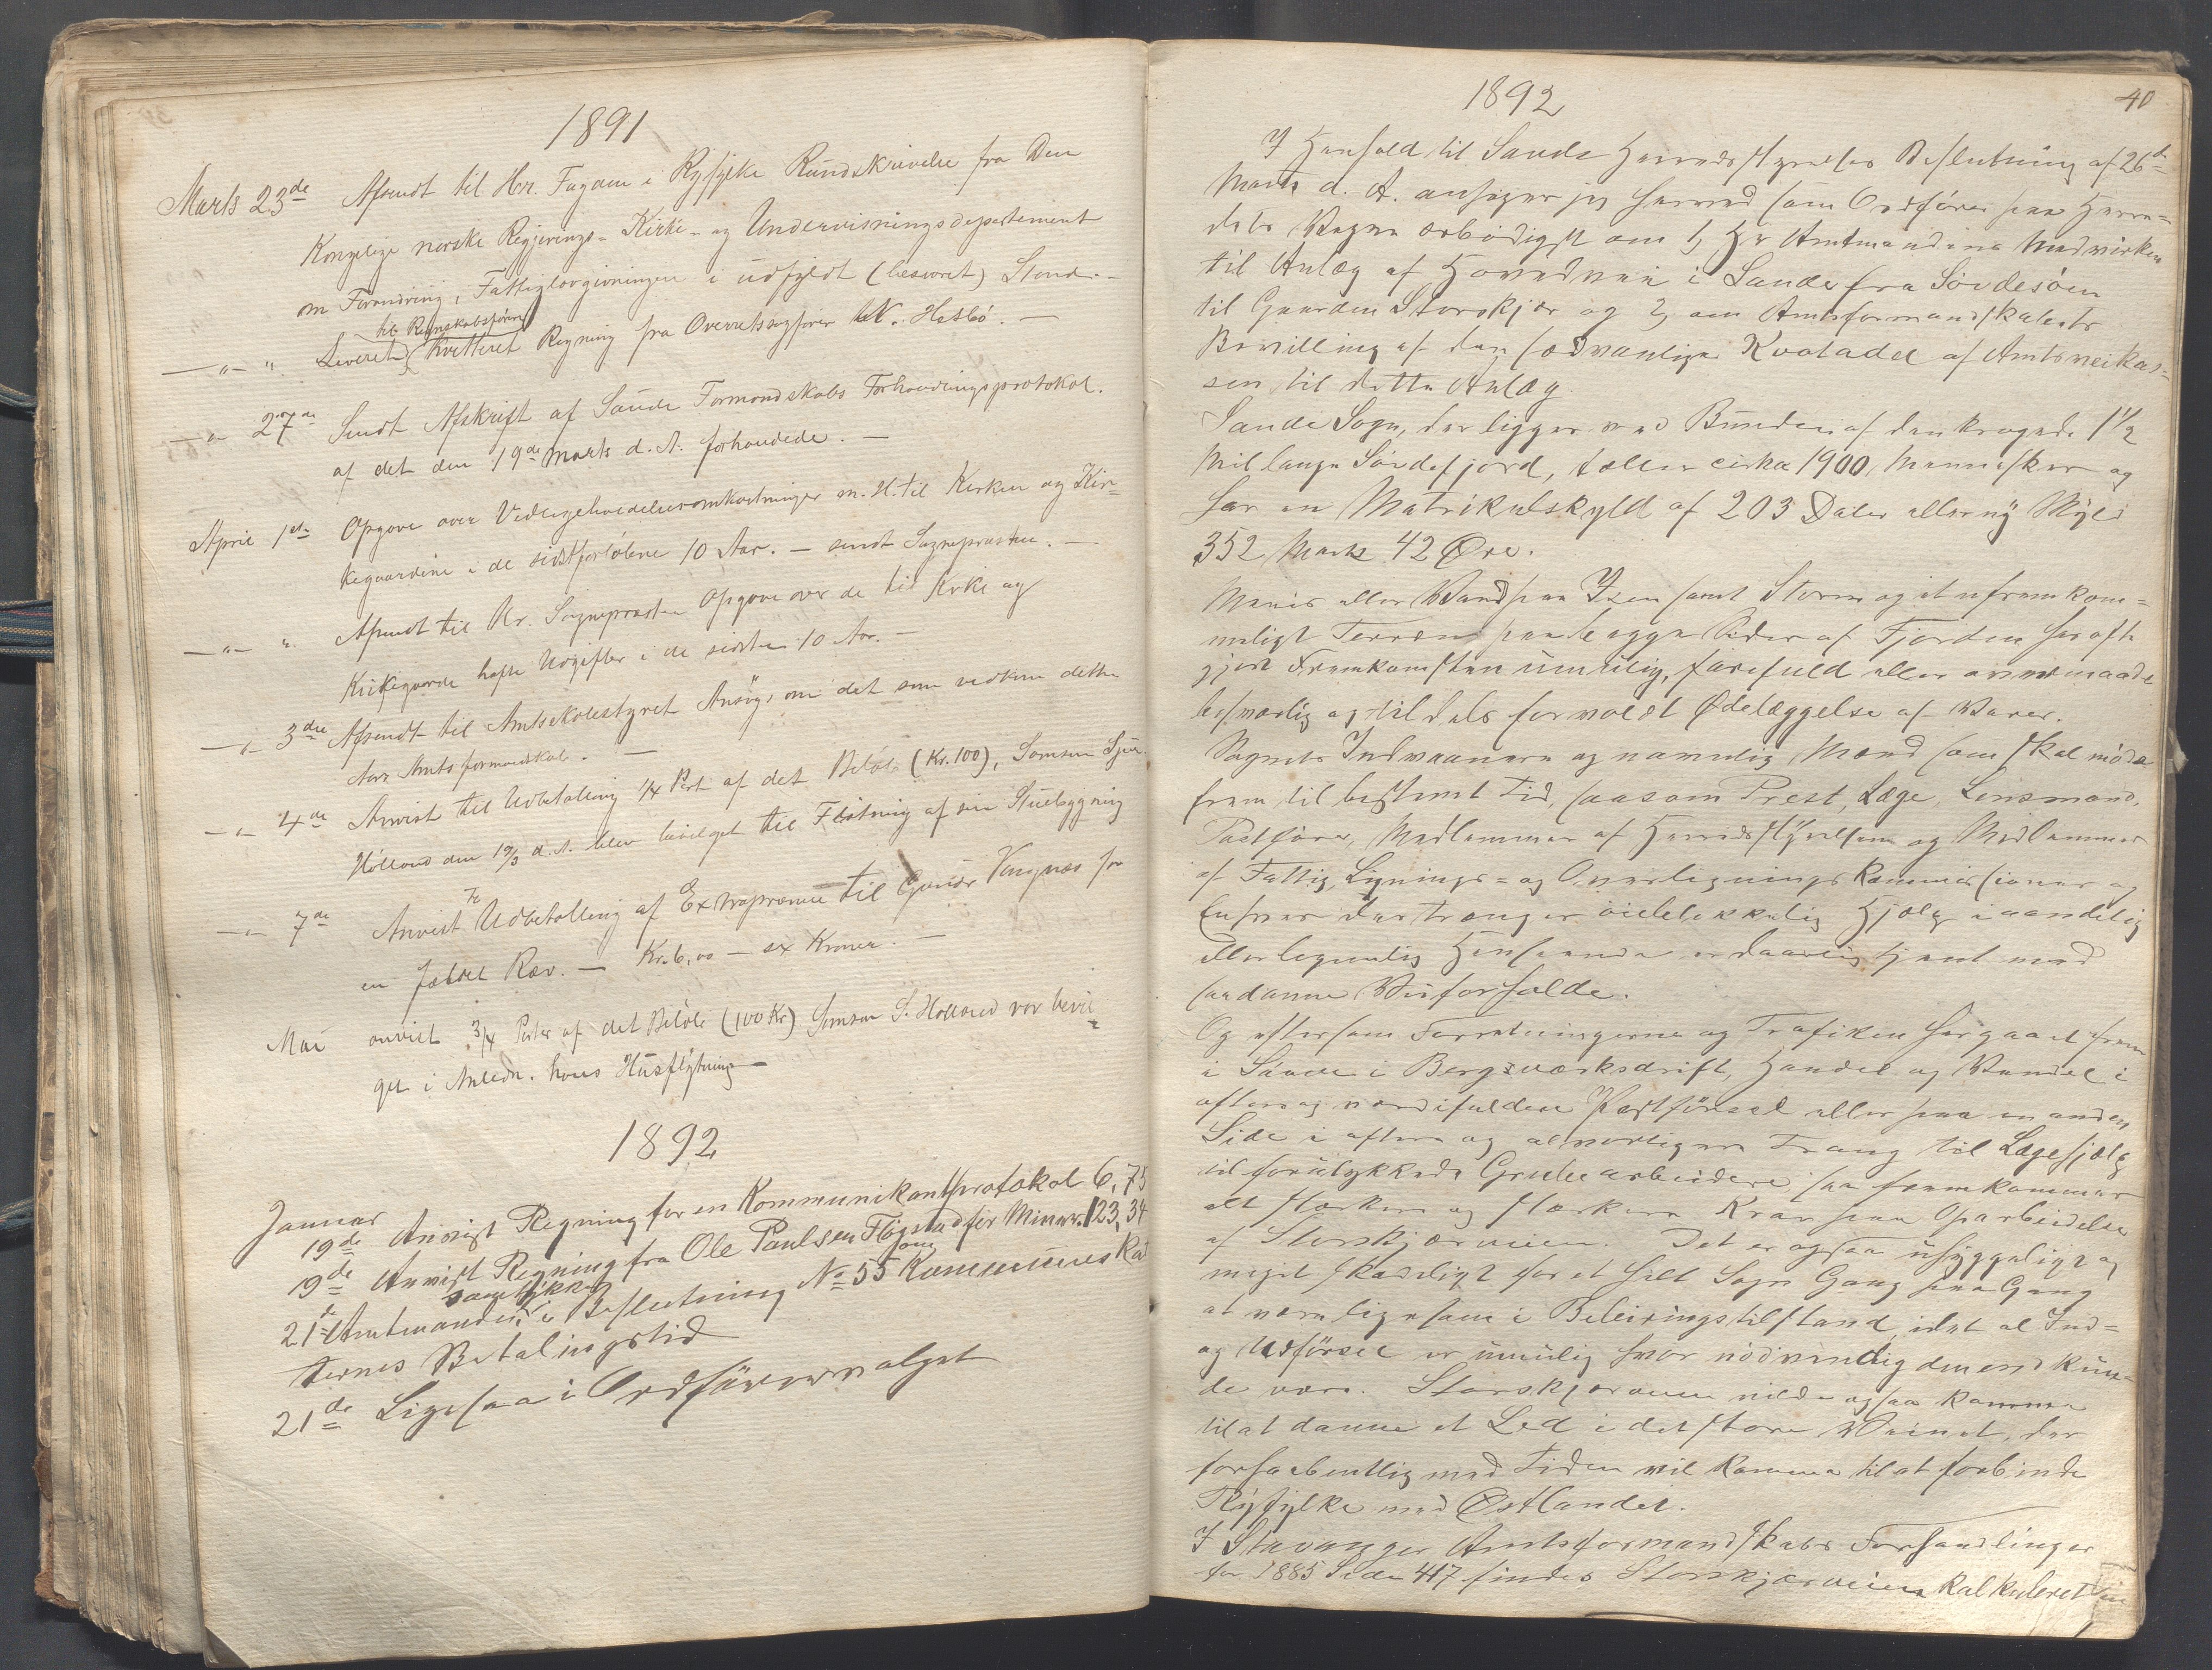 1891
Marts 23de Afsendt til Hr. Fogden i Ryfylke Rundskrivelse fra Den
Kongelige norske Regjerings- Kirke- og Undervisningsdepartement
om Forandring i Fattiglovgivningen i udfyldt (besvaret) Stand. —
til Regnskabsføreren
— " — " Leveret kvitteret Regning fra Overretssagfører Hatlø. —
— " 27de Sendt Afskrift af Saude Formandskabs Forhandlingsprotokol.
af det den 19de Marts d. A. forhandlede. —
April 1ste Opgave over Vedligeholdelsesomkostninger m. H. til Kirken og Kir=
kegaardene i de sidstforløbne 10 Aar. — sendt Sognepresten. —
— " — " Afsendt til Hr. Sognepresten Opgave over de til Kirke og
Kirkegaarde hafte Udgifter i de sidste 10 Aar. —
— " — 3die Afsendt til Amtsskolestyret Ansøgn om det som vedkom dette
Amtsformandskab. —
— " — 4de Anvist til Udbetaling 1/4 Part af det Beløb (Kr. 100), Samson
Hølland den 19/3 d. A. blev bevilget til Flötning af sin Stuebygning
— " — 7de Anvist Til Udbetalling af Extrapræmie til Gunder Vangnæs for
en fældet Ræv. — Kr. 6,00 — sex Kroner. —
Mai anvist 3/4 Parter af det Beløb (100 Kr) Samson S. Hølland var bevil=
get i Anledn. hans Husflytning —
1892
Januar
19de Anvist Regning for en Kommunikantprotokol 6,75
19de Anvist Regning fra Ole Paulsen Fløgstad for Minør. 123,34
samtykker om
21de Amtmanden i Beslutning No 55 Kommuneskat
ternes Betalingstid
21de Ligesaa i Ordførervalget
1892
40
I Henhold til Saude Herredsstyrelses Beslutning af 26de
Marts d. A. ansøger jeg herved som Ordfører paa Herre=
dets Vegne ærbødigst om 1) Hr Amtmandens Medvirken
til Anlæg af Hovedvei i Saude fra Søvdesøen
til Gaarden Storskjær og 2) om Amtsformandskabets
Bevilling af den sædvanlige Kvotadel af Amtsveikas=
sen til dette Anlæg.
Saude Sogn, der ligger ved Bunden af den krogede 1 1/2
Mil lange Søvdefjord, tæller cirka 1900 Mennesker og
har en Matrikulskyld af 203 Daler eller ny Skyld
352 Mark 42 Øre.
Menis eller Vand paa Isen samt Storm og et ufremkom=
meligt Terræn paa begge Sider af Fjorden har ofte
gjort Fremkomsten umulig, farefuld eller overmaade
besværlig og tildels forvoldt Ødelæggelse af Varer.
Sognets Indvaanere og navnlig Mænd som skal møde
frem til bestemt Tid, saasom Prest, Læge, Lensmand,
Postfører, Medlemmer af Herredsstyrelsen og Medlemmer
af Fattig, Lignings= og Overligningskommissioner og
Enhver der trænger øieblikkelig Hjælp i aandelig
eller legemlig Henseende er daarlig tjent med
saadanne Veiforholde.
Og eftersom Forretningerne og Trafiken har gaaet frem
i Saude i Bergværksdrift, Handel og Vandel i
oftere og værdifuldere Postförsel eller paa en anden
Side i oftere og alvorligere Trang til Lægehjælp
til forulykkede Grubearbeidere, saa fremkommer
alt stærkere og stærkere Krav paa Oparbeidelse
af Storskjærveien. Det er ogsaa uhyggeligt og
meget skadeligt for et helt Sogn Gang paa Gang
at være ligesom i Beleiringstilstand, idet al Ind=
og Udførsel er umulig hvor nødvendig den end kun=
de være. Storskjærveien vilde ogsaa komme
til at danne et Led i det store Veinet, der
forhaabentlig med Tiden vil komme til at forbinde
Ryfylke med Østlandet.
I Stavanger Amtsformandskabs Forhandlinger
for 1885 Side 417 findes Storskjærveien kalkuleret